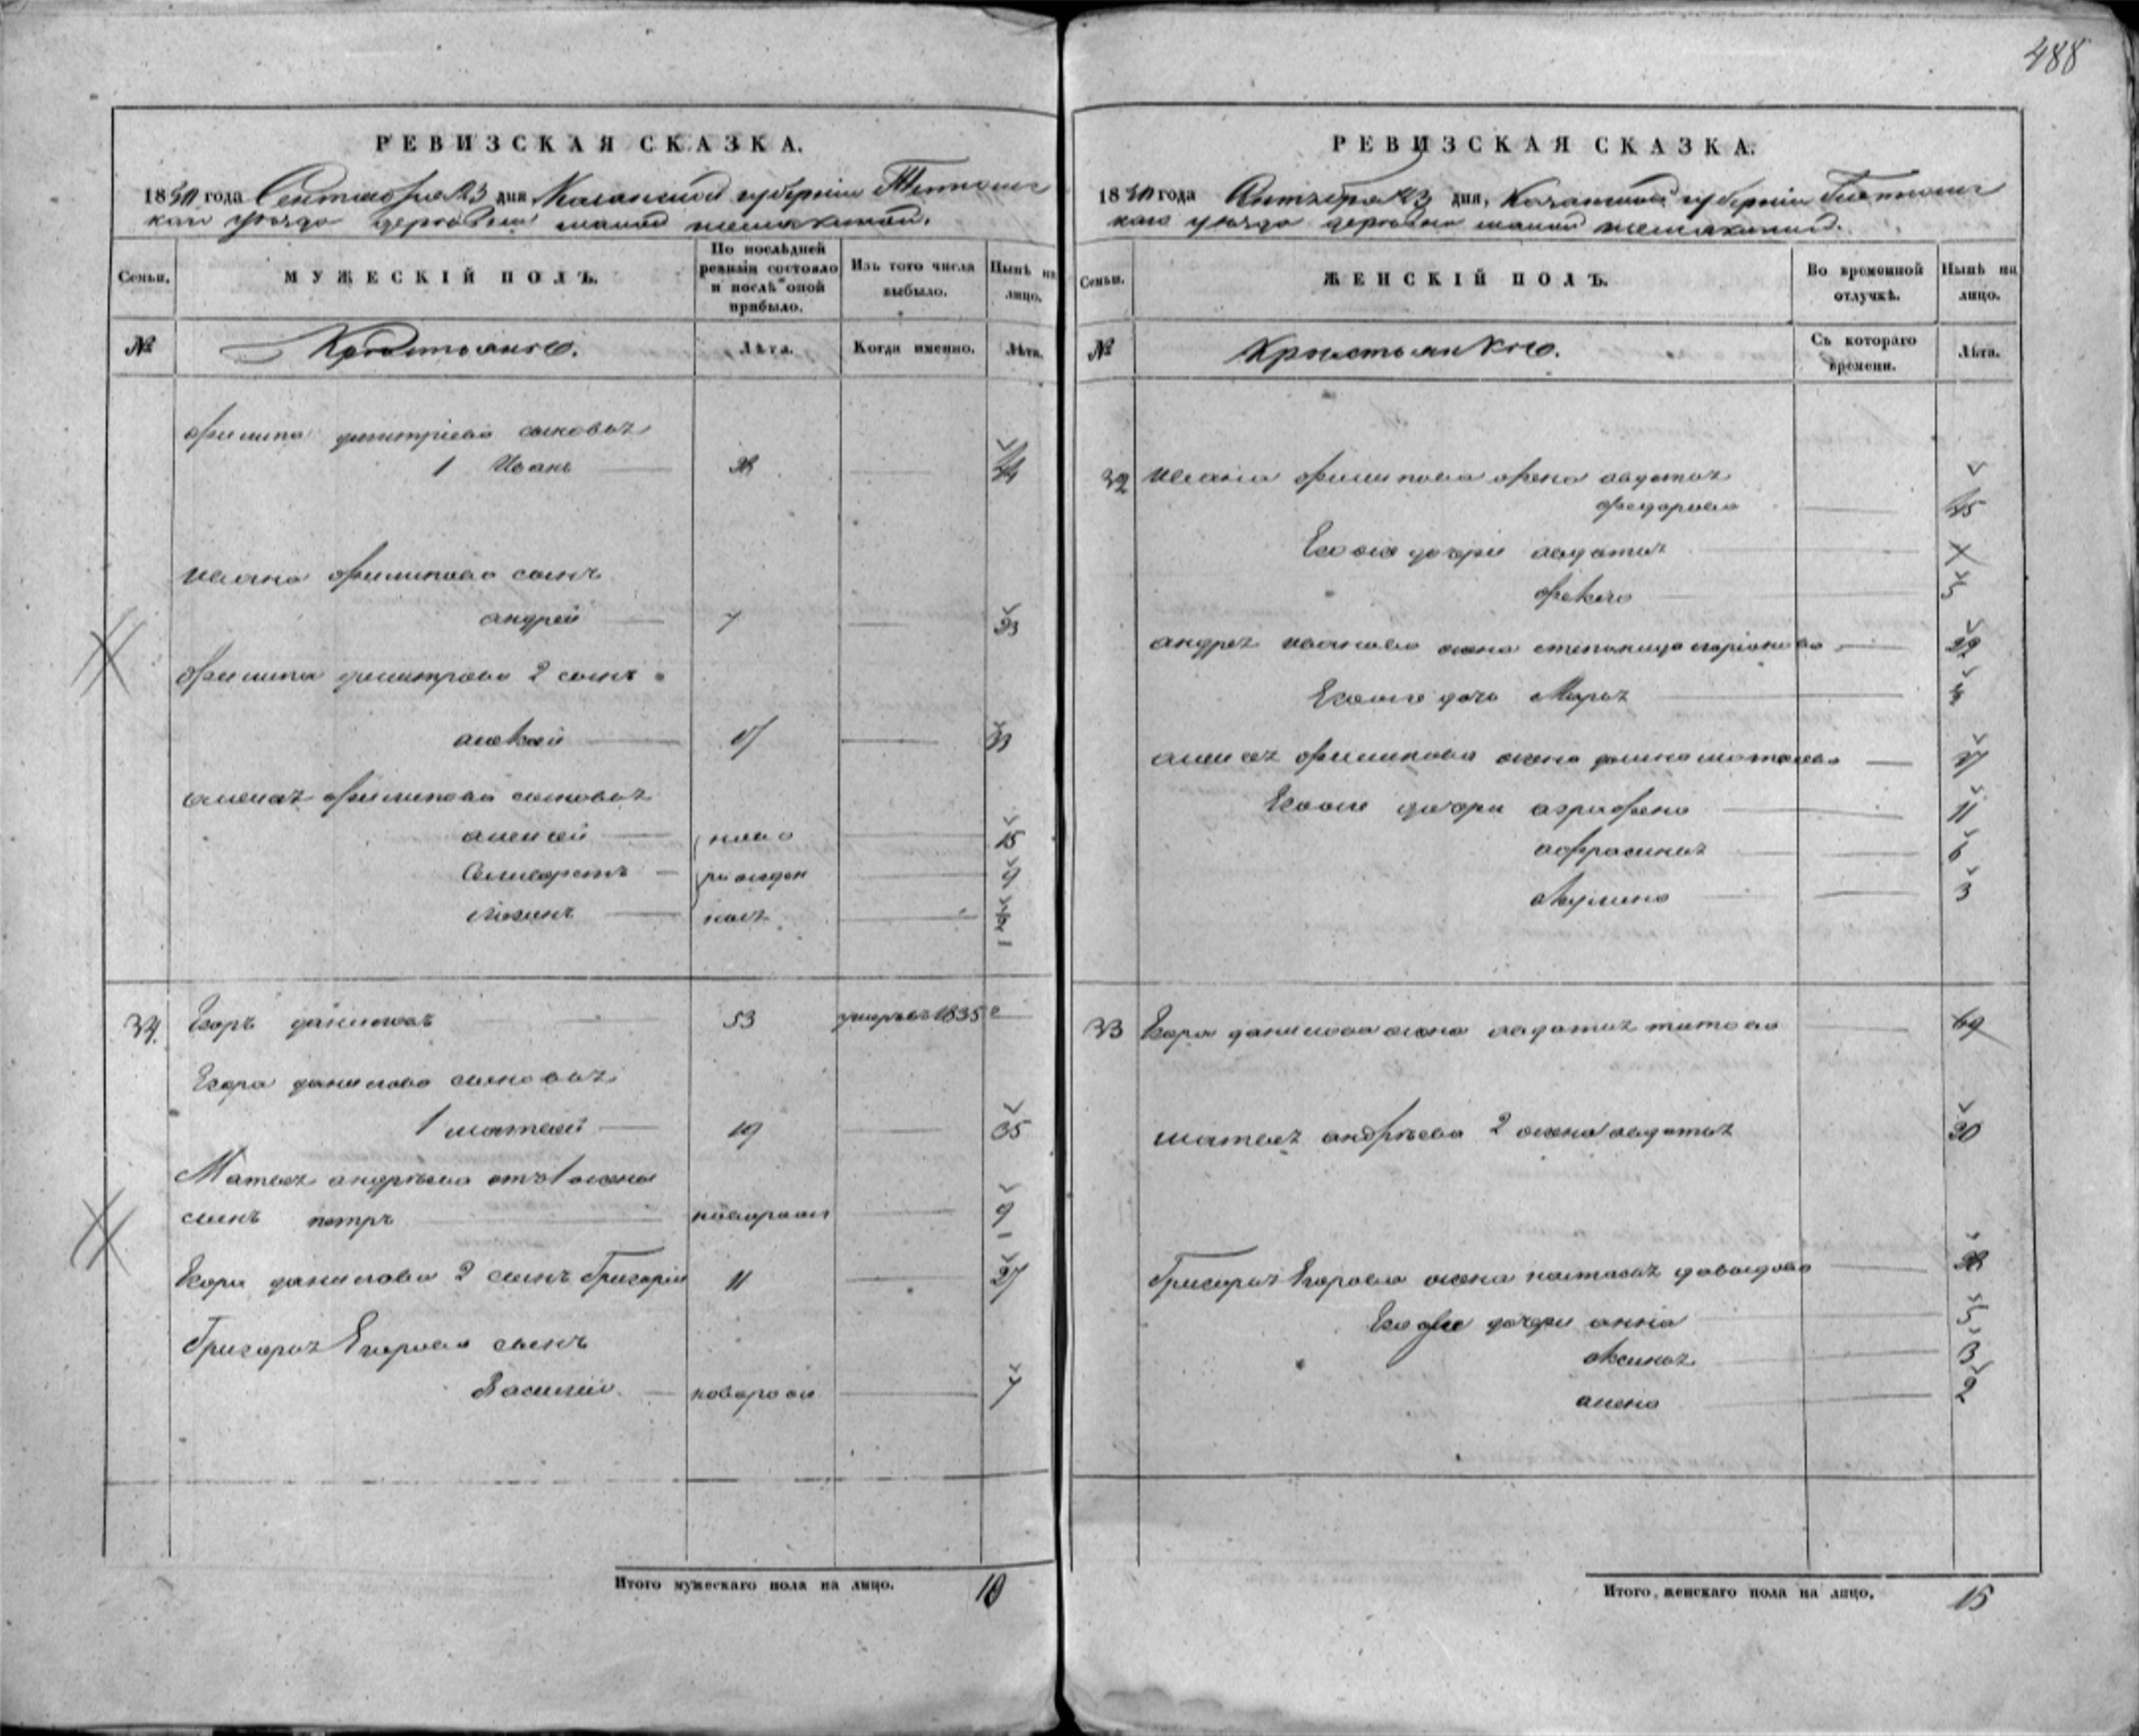 488
РЕВИЗСКАЯ СКАЗКА.
1850 года Сентября 23 дня Казанской губерніи Тетюшс
каго уѣзда деревни малой шемякиной.
Семьи.
МУЖЕСКІЙ ПОЛЪ.
По послѣдней ревизіи состояло и послѣ оной прибыло.
Изъ того числа выбыло.
Нынѣ на лицо.
№
Лѣта.
Когда именно.
Лѣта.
филипа дмитріева сыновья
1 Иванъ 28 44
ивана филипова сынъ
андрей 7 23
филипа дмитрева 2 сынъ
алексей 17 33
алексея филипова сыновья
алексей ново 15
рожден 9
логинъ ные
34 Егоръ даниловъ 53 умеръ въ 1835 г
Егора данилова сыновья
1 матвей 19 35
Матвея андрѣева отъ 1 жены
сынъ петръ новорож 9
Егора данилова 2 сынъ Григорій 11 27
Григорья Егорова сынъ
Василий новорож 7
Итого мужескаго пола на лицо. 10
РЕВИЗСКАЯ СКАЗКА.
1850 года Октября 23 дня, Казанской губерніи Тетюшс
каго уѣзда деревни малой шемякиной.
Семьи.
ЖЕНСКІЙ ПОЛЪ.
Во временной отлучкѣ.
Нынѣ на лицо.
№
Съ котораго времени.
Лѣта.
32 ивана филипова жена авдотья
федорова 45
Ево же дочери авдотья
фекла 5
андрея иванова жена степанида ларіонова 22
Ево же дочь Марья 4
алексея филипова жена
Ево же дочери аграфена 11
афросинья 6
акулина 3
33 Егора данилова жена авдотья титова 69
матвея андрѣева 2 жена авдотья 30
Григорья Егорова жена настасья давыдова 28
Ево же дочери анна 5
аксинья 3
алена 2
Итого женскаго пола на лицо. 15